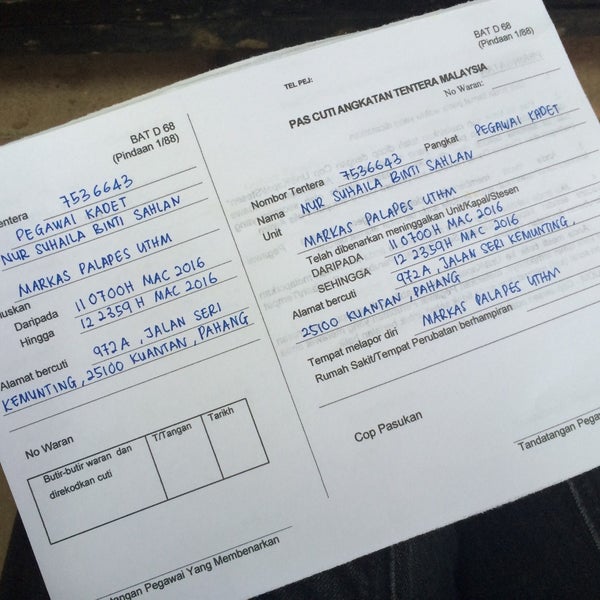 BAT D 68
(Pindaan 1/88)
entera 7536643
PEGAWAI KADET
NUR SUHAILA BINTI SAHLAN
MARKAS PALAPES UTHM
uskan
Daripada 11 0700H MAC 2016
Hingga 12 2359H MAC 2016
Alamat bercuti 972A, JALAN SERI
KEMUNTING, 25100 KUANTAN, PAHANG
No Waran
Butir-butir waran dan direkodkan cuti
T/Tangan
Tarikh
datangan Pegawai Yang Membenarkan
BAT D 68
(Pindaan 1/88)
TEL PEJ:
PAS CUTI ANGKATAN TENTERA MALAYSIA
No Waran:
Nombor Tentera 7536643 Pangkat PEGAWAI KADET
Nama NUR SUHAILA BINTI SAHLAN
Unit MARKAS PALAPES UTHM
Telah dibenarkan meninggalkan Unit/Kapal/Stesen
DARIPADA 11 0700H MAC 2016
SEHINGGA 12 2359H MAC 2016
Alamat bercuti 972A, JALAN SERI KEMUNTING,
25100 KUANTAN, PAHANG
Tempat melapor diri MARKAS PALAPES UTHM
Rumah Sakit/Tempat Perubatan berhampiran
Cop Pasukan
Tandatangan Pegaw